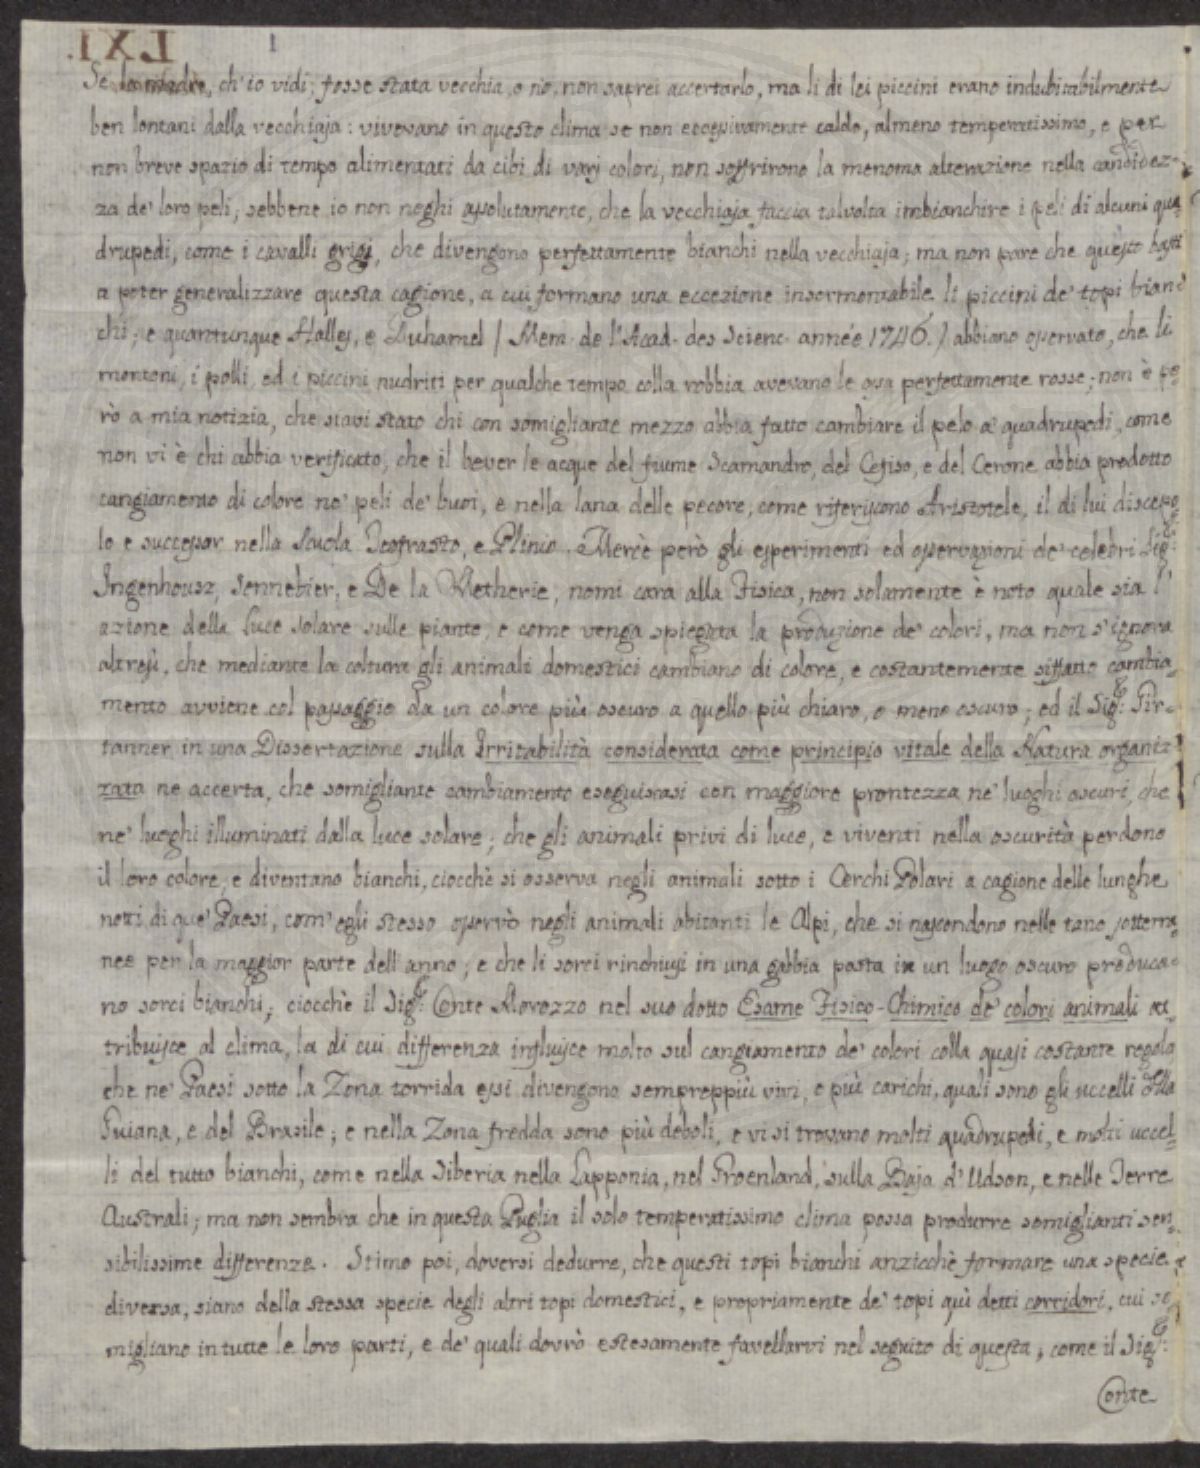 LXI. 1
Se la madre, ch'io vidi, fosse stata vecchia, o nò, non saprei accertarlo, ma li di lei piccini erano indubitabilmente
ben lontani dalla vecchiaja: vivevano in questo clima se non eccessivamente caldo, almeno temperatissimo, e per
non breve spazio di tempo alimentati da cibi di varj colori, non soffrirono la menoma alterazione nella candidez-
za de' loro peli; sebbene io non neghi assolutamente, che la vecchiaja faccia talvolta imbianchire i peli di alcuni qua-
drupedi, come i cavalli grigj, che divengono perfettamente bianchi nella vecchiaja; ma non pare che questo basti
a poter generalizzare questa cagione, a cui formano una eccezione insormontabile li piccini de' topi bian-
chi; e quantunque Halley, e Duhamel / Mem. de l'Acad. des Scienc. année 1746. / abbiano osservato, che li
montoni, i polli, ed i piccini nudriti per qualche tempo colla robbia avevano le ossa perfettamente rosse; non è pe-
rò a mia notizia, che siavi stato chi con somigliante mezzo abbia fatto cambiare il pelo a' quadrupedi, come
non vi è chi abbia verificato, che il bever le acque del fiume Scamandro, del Cefiso, e del Cerone abbia prodotto
cangiamento di colore ne' peli de' buoi, e nella lana delle pecore, come riferiscono Aristotele, il di lui discepo-
lo e successor nella Scuola Teofrasto, e Plinio. Mercè però gli esperimenti ed osservazioni de' celebri Sigg.ri
Ingenhousz, Sennebier, e De la Metherie, nomi cara alla Fisica, non solamente è noto quale sia l'
azione della luce solare sulle piante, e come venga spiegata la produzione de' colori, ma non s'ignora
altresì, che mediante la coltura gli animali domestici cambiano di colore, e costantemente siffatto cambia-
mento avviene col passaggio da un colore più oscuro a quello più chiaro, o meno oscuro; ed il Sig.r Gir-
tanner in una Dissertazione sulla Irritabilità considerata come principio vitale della Natura organiz-
zata ne accerta, che somigliante cambiamento eseguiscasi con maggiore prontezza ne' luoghi oscuri, che
ne' luoghi illuminati dalla luce solare; che gli animali privi di luce, e viventi nella oscurità perdono
il loro colore, e diventano bianchi, ciocchè si osserva negli animali sotto i Cerchi Polari a cagione delle lunghe
notti di que' Paesi, com'egli stesso osservò negli animali abitanti le Alpi, che si nascondono nelle tane sotterra-
nee per la maggior parte dell'anno; e che li sorci rinchiusi in una gabbia posta in un luogo oscuro produca-
no sorci bianchi; ciocchè il Sig.r Conte Morozzo nel suo dotto Esame Fisico-Chimico de' colori animali at-
tribuisce al clima, la di cui differenza influisce molto sul cangiamento de' colori colla quasi costante regola
che ne' Paesi sotto la Zona torrida essi divengono sempreppiù vivi, e più carichi, quali sono gli uccelli della
Guiana, e del Brasile; e nella Zona fredda sono più deboli, e vi si trovano molti quadrupedi, e molti uccel-
li del tutto bianchi, come nella Siberia nella Lapponia, nel Groenland, sulla Baja d'Udson, e nelle Terre
Australi; ma non sembra che in questa Puglia il solo temperatissimo clima possa produrre somiglianti sen-
sibilissime differenze. Stimo poi, doversi dedurre, che questi topi bianchi anzicchè formare una specie
diversa, siano della stessa specie degli altri topi domestici, e propriamente de' topi quì detti corridori, cui so-
migliano in tutte le loro parti, e de' quali dovrò estesamente favellarvi nel seguito di questa; come il Sig.r
Conte